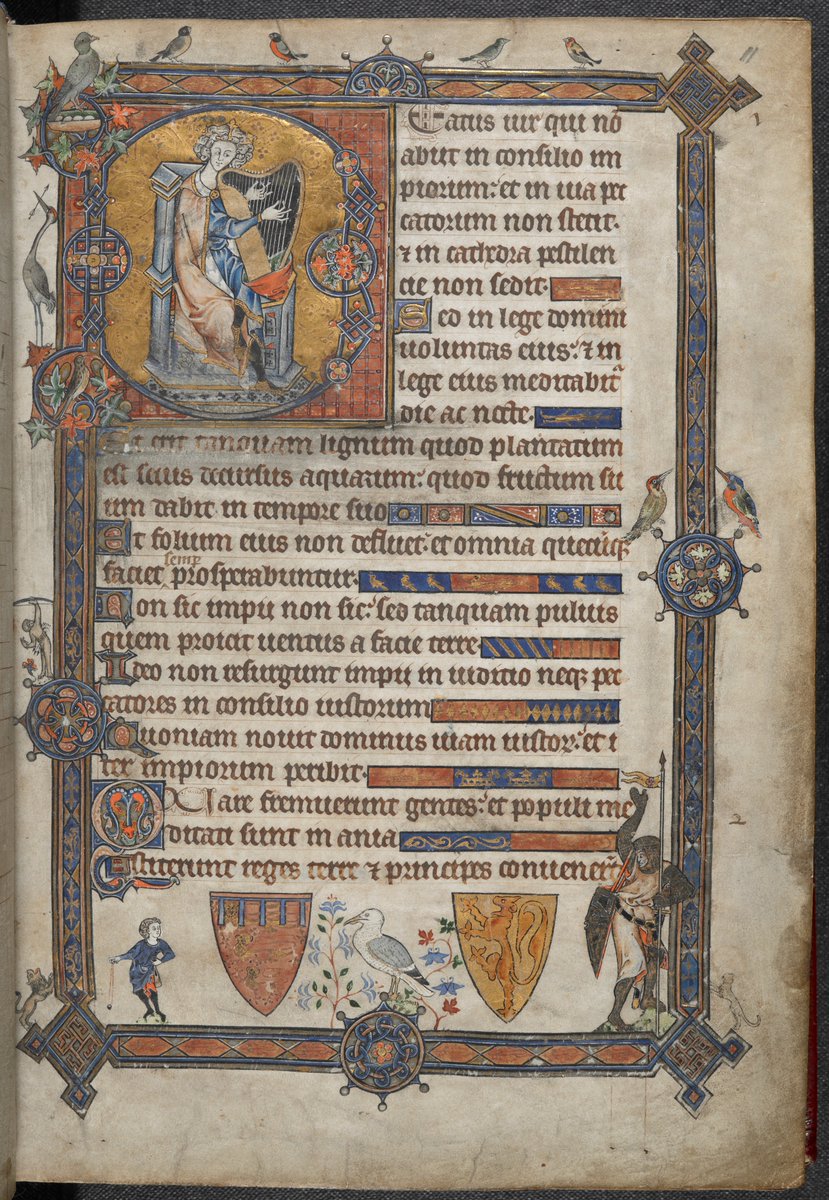 11
1
Beatus uir qui nō
abiit in consilio im
piorum: et in uia pec
catorum non stetit.
& in cathedra pestilen
cie non sedit.
Sed in lege domini
uoluntas eius: & in
lege eius meditabit᷑
die ac nocte.
Et erit tanquam lignum quod plantatum
est secus decursus aquarum: quod fructum su
um dabit in tempore suo
Et folium eius non defluet: et omnia quecūqꝫ
semp
faciet prosperabuntur.
Non sic impii non sic: sed tanquam puluis
quem proicit uentus a facie terre
Ideo non resurgunt impii in iuditio neqꝫ pec
catores in consilio iustorum
Quoniam nouit dominus uiam iustoꝝ: et i
ter impiorum peribit.
Quare fremuerunt gentes: et populi me
2
ditati sunt inania
Astiterunt reges terre & principes conuener᷑t